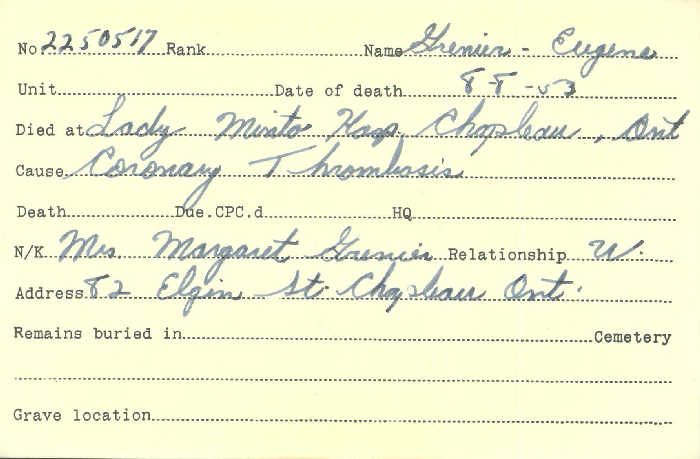 No 2250517 Rank Name Grenier - Eugene
Unit Date of death 8-8-53
Died at Lady Minto Hosp. Chapleau, Ont
Cause Coronary Thrombosis
Death Due.CPC.d HQ
N/K Mrs. Margaret Grenier Relationship W.
Address 82 Elgin St. Chapleau Ont.
Remains buried in Cemetery
Grave location